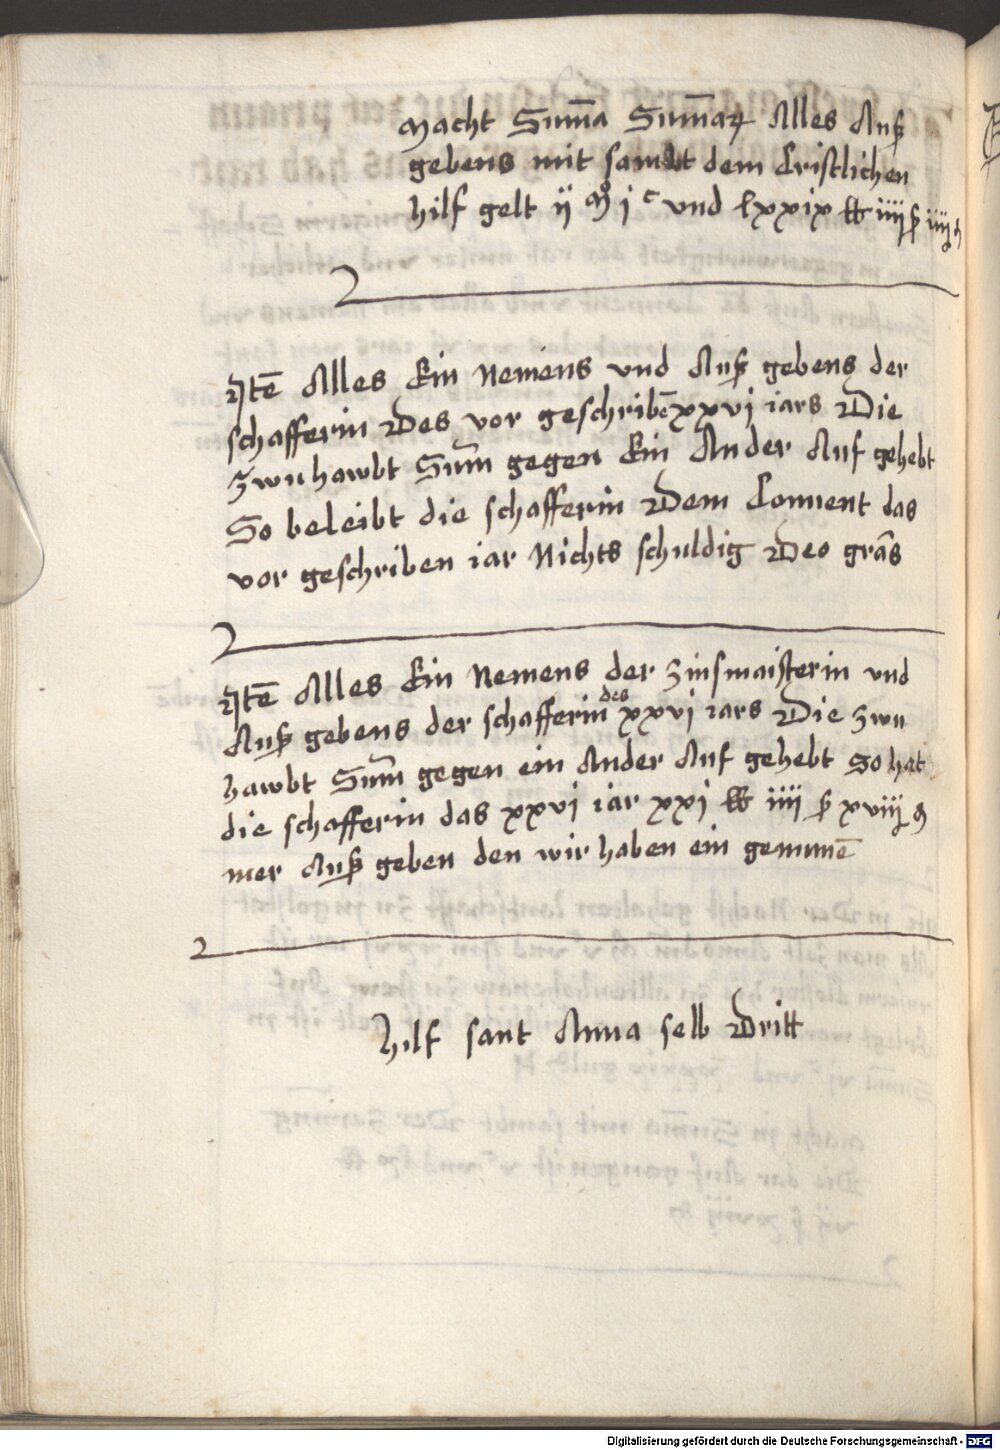 Macht Sum̄a Sum̄aꝝ Alles Auß
gebens mit sambt dem Cristlichen
hilf gelt ij M j c und lxxix ℔ iiij ß iiij ₰
Itē Alles Ein Nemens und Auß gebens der
schafferin Des vor geschribē xxvj iars Die
zwu hawbt Sum̄ gegen Ein Ander Auf gehebt
So beleibt die schafferin Dem Conuent das
vor geschriben iar Nichts schuldig Deo grās
Itē Alles Ein Nemens der zinsmaisterin und
Auß gebens der schafferin des xxvj iars Die zwu
hawbt Sum̄ gegen ein Ander Auf gehebt So hat
die schafferin das xxvj iar xxj ℔ iiij ß xviij ₰
mer Auß geben den wir haben ein genumē
hilf sant Anna selb Dritt
Digitalisierung gefördert durch die Deutsche Forschungsgemeinschaft - DFG